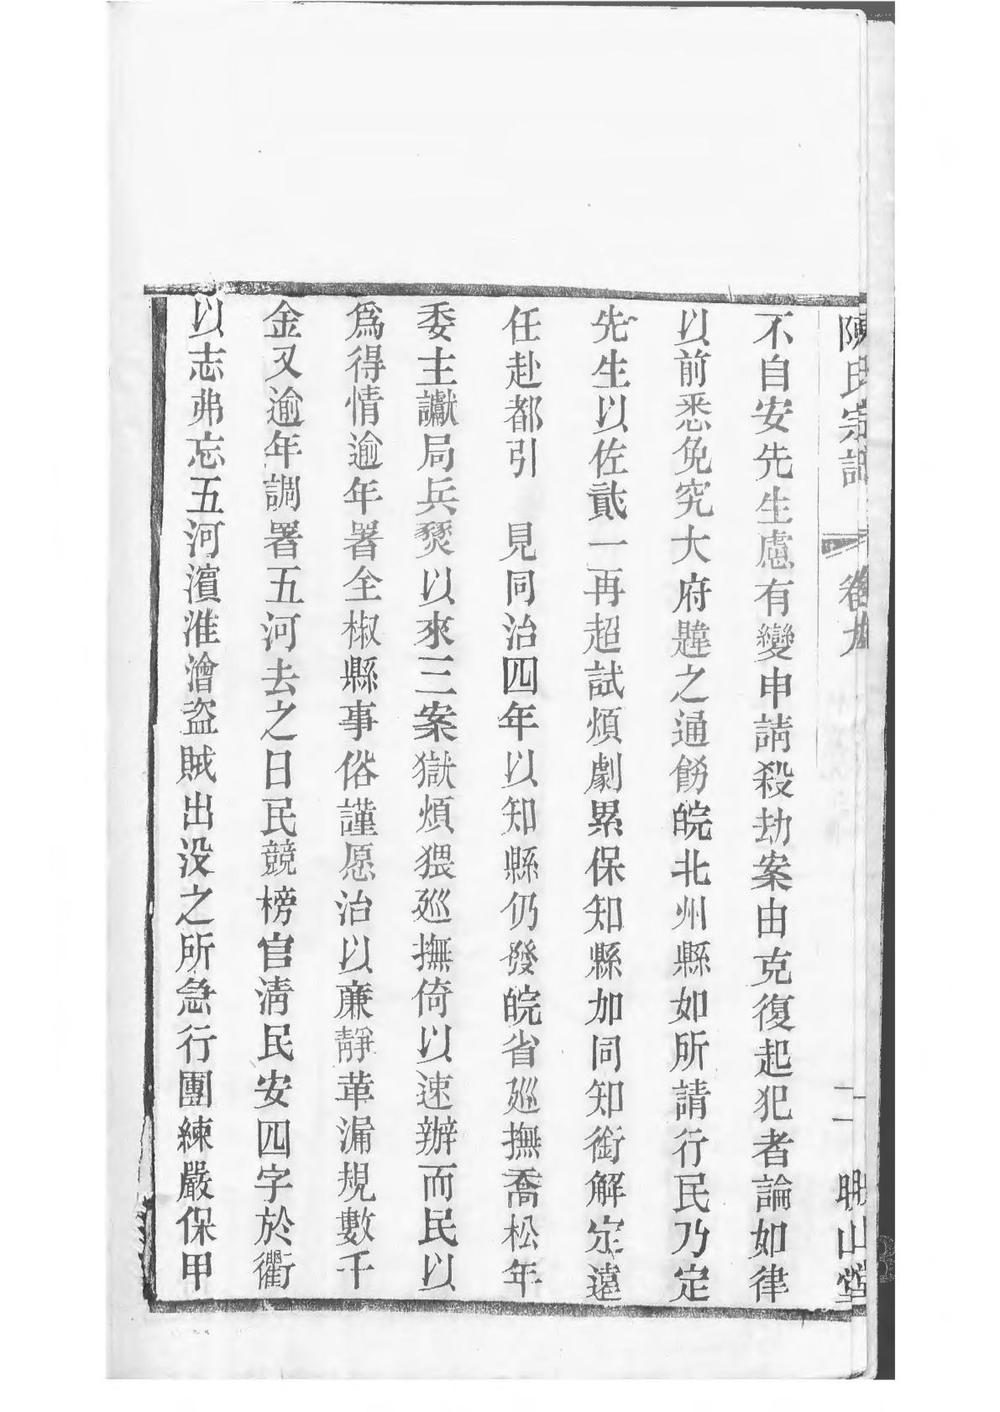 陳氏宗譜 卷九 二 聰山堂
不自安先生慮有變申請殺劫案由克復起犯者論如律
以前悉免究大府韙之通飭皖北州縣如所請行民乃定
先生以佐貳一再超試煩劇累保知縣加同知銜解定遠
任赴都引 見同治四年以知縣仍發皖省廵撫喬松年
委主讞局兵燹以來三案獄煩猥廵撫倚以速辦而民以
爲得情逾年署全椒縣事俗謹愿治以廉靜革漏規數千
金又逾年調署五河去之日民競榜官淸民安四字於衢
以志弗忘五河濵淮澮盜賊出没之所急行團練嚴保甲